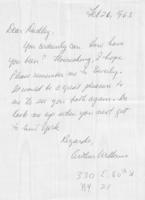 Feb 26, 1963
Dear Hadley,
You certainly can. How have
you been? Flourishing, I hope
Please remember me to Beverly.
It would be a great pleasure to
me to see you both again. Do
look me up when you next get
to New York
Regards,
Arthur Williams
330 E. 60th St
NY 22